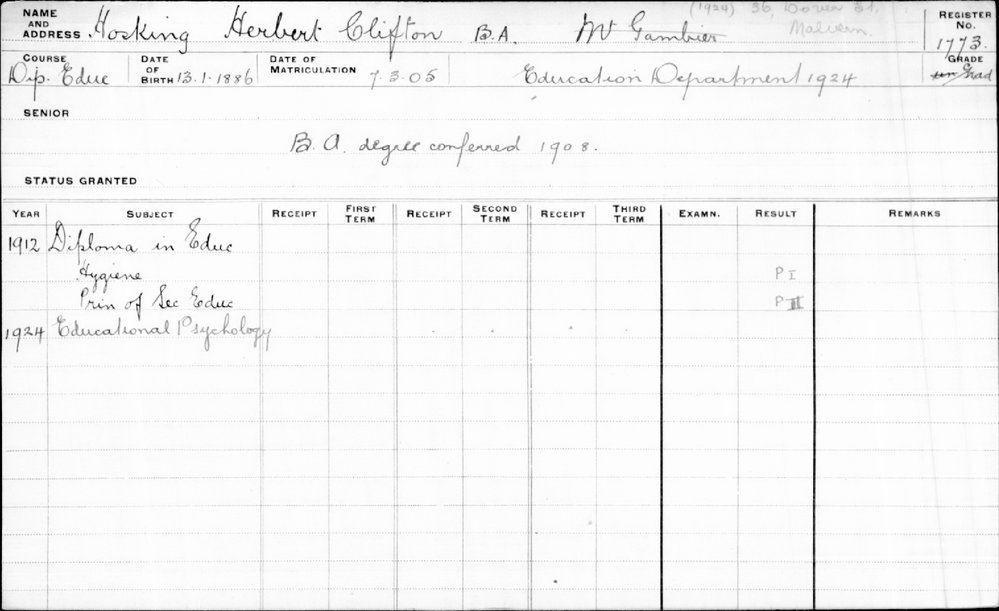 NAME AND ADDRESS Hosking Herbert Clifton B.A. Mt Gambier (1924) 36, Dover St. Malvern. REGISTER No. 1773.
COURSE Dip. Educ DATE OF BIRTH 13.1.1886 DATE OF MATRICULATION 7.3.05 Education Department 1924 GRADE un Grad
SENIOR
B.A. degree conferred 1908.
STATUS GRANTED
YEAR SUBJECT RECEIPT FIRST TERM RECEIPT SECOND TERM RECEIPT THIRD TERM EXAMN. RESULT REMARKS
1912 Diploma in Educ
Hygiene P I
Prin of Sec Educ P II
1924 Educational Psychology